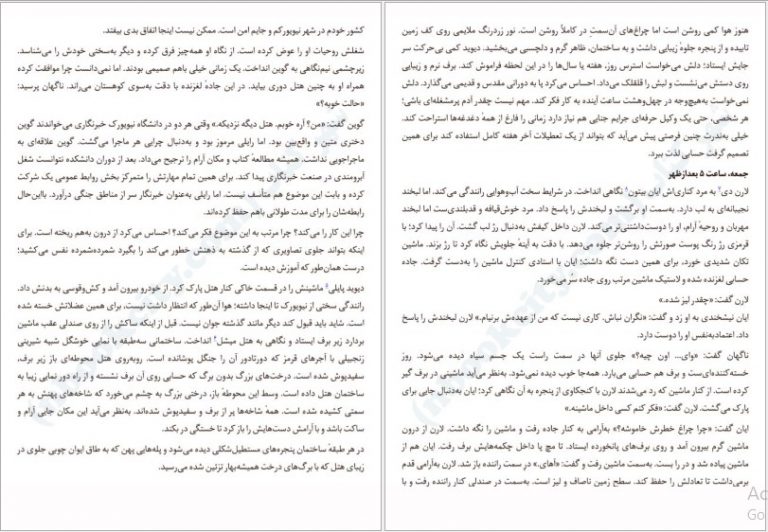 هنوز هوا کمی روشن است اما چراغ‌های آن‌سمت در کاملاً روشن است. نور زردرنگ ملایمی روی کف زمین
تابیده و از پنجره جلوهٔ زیبایی داشت و به ساختمان، ظاهر گرم و دلچسبی می‌بخشید. دیوید کمی بی‌حرکت سر
جایش ایستاد؛ دلش می‌خواست استرس روز، هفته یا سال‌ها را در این لحظه فراموش کند. برف نرم و زیبایی
روی دستش می‌نشست و لبش را قلقلک می‌داد. احساس می‌کرد پا به دورانی مقدس و قدیمی می‌گذارد. دلش
نمی‌خواست به‌هیچ‌وجه در چهل‌وهشت ساعت آینده به کار فکر کند. مهم نیست چقدر آدم پرمشغله‌ای باشی؛
هر شخصی، حتی یک وکیل حرفه‌ای جرایم جنایی هم نیاز دارد زمانی را فارغ از همهٔ دغدغه‌ها استراحت کند.
خیلی به‌ندرت چنین فرصتی پیش می‌آید که بتواند از یک تعطیلات آخر هفته کامل استفاده کند برای همین
تصمیم گرفت حسابی لذت ببرد.
جمعه، ساعت ۵ بعدازظهر
لارن دی به مرد کناری‌اش ایان بیتون نگاهی انداخت. در شرایط سخت آب‌وهوایی رانندگی می‌کند. اما لبخند
نجیبانه‌ای به لب دارد. به‌سمت او برگشت و لبخندش را پاسخ داد. مرد خوش‌قیافه و قدبلندی‌ست اما لبخند
مهربان و روحیهٔ آرام، او را دوست‌داشتنی‌تر می‌کند. لارن داخل کیفش به‌دنبال رژ لب گشت. آن را پیدا کرد؛ با
قرمزی رژ رنگ پوست صورتش را روشن‌تر جلوه می‌دهد. با دقت به آینهٔ جلویش نگاه کرد تا رژ بزند. ماشین
تکان شدیدی خورد، برای همین دست نگه داشت؛ ایان با استادی کنترل ماشین را به‌دست گرفت. جاده
حسابی لغزنده شده و لاستیک ماشین مرتب روی جاده سر می‌خورد.
لارن گفت: «چقدر لیز شده.»
ایان نیشخندی به او زد و گفت: «نگران نباش. کاری نیست که من از عهده‌ش برنیام.» لارن لبخندش را پاسخ
داد. اعتمادبه‌نفس او را دوست دارد.
ناگهان گفت: «وای... اون چیه؟» جلوی آنها در سمت راست یک جسم سیاه دیده می‌شود. روز
خسته‌کننده‌ای‌ست و برف هم حسابی می‌بارد. همه‌جا خوب دیده نمی‌شود. به‌نظر می‌آید ماشینی در برف گیر
کرده است. از کنار ماشین که رد می‌شدند لارن با کنجکاوی از پنجره به آن نگاهی کرد؛ ایان به‌دنبال جایی برای
پارک می‌گشت. لارن گفت: «فکر کنم کسی داخل ماشینه.»
ایان گفت: «چرا چراغ خطرش خاموشه؟» به‌آرامی به کنار جاده رفت و ماشین را نگه داشت. لارن از درون
ماشین گرم بیرون آمد و روی برف‌های پانخورده ایستاد. تا مچ پا داخل چکمه‌هایش برف رفت. ایان هم از
ماشین پیاده شد و در را بست. به‌سمت ماشین رفت و گفت: «آهای.» در سمت راننده باز شد. لارن به‌آرامی قدم
برمی‌داشت تا تعادلش را حفظ کند. سطح زمین ناصاف و لیز است. به‌سمت در صندلی کنار راننده رفت و با
کشور خودم در شهر نیویورکم و جایم امن است. ممکن نیست اینجا اتفاق بدی بیفتد.
شغلش روحیات او را عوض کرده است. از نگاه او همه‌چیز فرق کرده و دیگر به‌سختی خودش را می‌شناسد.
زیرچشمی نیم‌نگاهی به گوین انداخت. یک زمانی خیلی باهم صمیمی بودند. اما نمی‌دانست چرا موافقت کرده
همراه او به چنین هتل دوری بیاید. در این جادهٔ لغزنده با دقت به‌سوی کوهستان می‌راند. ناگهان پرسید:
«حالت خوبه؟»
گوین گفت: «من؟ آره خوبم. هتل دیگه نزدیکه.» وقتی هر دو در دانشگاه نیویورک خبرنگاری می‌خواندند گوین
دختری متین و واقع‌بین بود. اما رایلی مرموز بود و به‌دنبال چرایی هر ماجرا می‌گشت. گوین علاقه‌ای به
ماجراجویی نداشت. همیشه مطالعهٔ کتاب و مکان آرام را ترجیح می‌داد. بعد از دوران دانشکده نتوانست شغل
آبرومندی در صنعت خبرنگاری پیدا کند. برای همین تمام مهارتش را متمرکز بخش روابط عمومی یک شرکت
کرده و بابت این موضوع هم متأسف نیست. اما رایلی به‌عنوان خبرنگار سر از مناطق جنگی درآورد. بااین‌حال
رابطه‌شان را برای مدت طولانی باهم حفظ کرده‌اند.
چرا این کار را می‌کند؟ چرا مرتب به این موضوع فکر می‌کند؟ احساس می‌کرد از درون به‌هم ریخته است. برای
اینکه بتواند جلوی تصاویری که از گذشته به ذهنش خطور می‌کند را بگیرد شمرده‌شمرده نفس می‌کشید؛
درست همان‌طور که آموزش دیده است.
دیوید پایلی ماشینش را در قسمت خاکی کنار هتل پارک کرد. از خودرو بیرون آمد و کش‌وقوسی به بدنش داد.
رانندگی سختی از نیویورک تا اینجا داشته؛ هوا آن‌طور که انتظار داشت نیست، برای همین عضلاتش خسته شده
است. شاید باید قبول کند دیگر مانند گذشته جوان نیست. قبل از اینکه ساکش را از روی صندلی عقب ماشین
بردارد زیر برف ایستاد و نگاهی به هتل میشل انداخت. ساختمانی سه‌طبقه با نمایی خوشگل شبیه شیرینی
زنجبیلی با آجرهای قرمز که دورتادور آن را جنگل پوشانده است. روبه‌روی هتل محوطه‌ای باز زیر برف،
سفیدپوش شده است. درخت‌های بزرگ بدون برگ که حسابی روی آن برف نشسته و از راه دور نمایی زیبا به
ساختمان هتل داده است. وسط این محوطهٔ باز، درختی بزرگ به چشم می‌خورد که شاخه‌های پهنش به هر
سمتی کشیده شده است. همهٔ شاخه‌ها پر از برف و سفیدپوش شده‌اند. به‌نظر می‌آید این مکان جایی آرام و
ساکت باشد و با آرامش دست‌هایش را باز کرد تا خستگی در بکند.
در هر طبقهٔ ساختمان پنجره‌های مستطیل‌شکلی دیده می‌شود و پله‌هایی پهن که به طاق ایوان چوبی جلوی در
زیبای هتل که با برگ‌های درخت همیشه‌بهار تزئین شده می‌رسید.